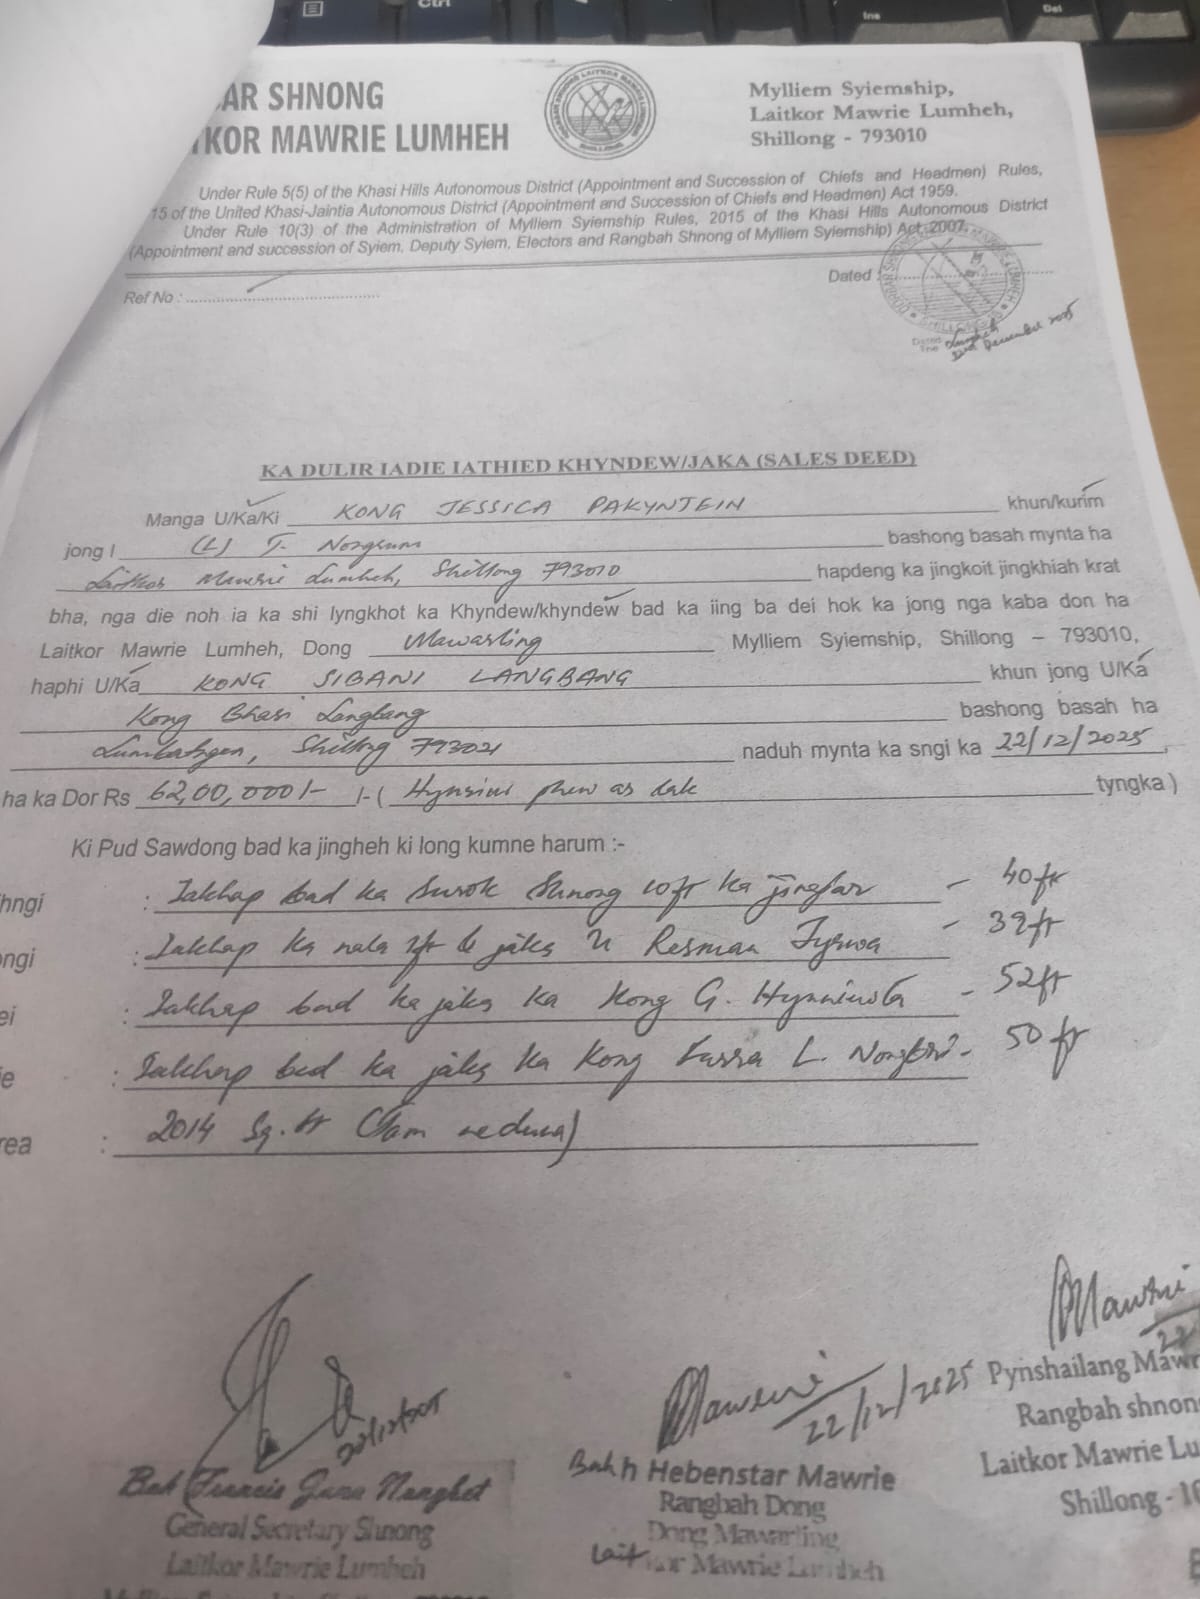 Ctrl
Ins
Del
AR SHNONG
KOR MAWRIE LUMHEH
Mylliem Syiemship,
Laitkor Mawrie Lumheh,
Shillong - 793010
Under Rule 5(5) of the Khasi Hills Autonomous District (Appointment and Succession of Chiefs and Headmen) Rules,
15 of the United Khasi-Jaintia Autonomous District (Appointment and Succession of Chiefs and Headmen) Act 1959.
Under Rule 10(3) of the Administration of Mylliem Syiemship Rules, 2015 of the Khasi Hills Autonomous District
(Appointment and succession of Syiem, Deputy Syiem, Electors and Rangbah Shnong of Mylliem Syiemship) Act, 2007.
Ref No :
Dated :
Dated
The 22nd December 2025
KA DULIR IADIE IATHIED KHYNDEW/JAKA (SALES DEED)
Manga U/Ka/Ki KONG JESSICA PAKYNTEIN khun/kurim
jong I (L) T. Nongrum bashong basah mynta ha
Laitkor Mawrie Lumheh, Shillong 793010 hapdeng ka jingkoit jingkhiah krat
bha, nga die noh ia ka shi lyngkhot ka Khyndew/khyndew bad ka iing ba dei hok ka jong nga kaba don ha
Laitkor Mawrie Lumheh, Dong Mawarling Mylliem Syiemship, Shillong – 793010,
haphi U/Ka KONG SIBANI LANGBANG khun jong U/Ka
Kong Bhasi Langbang bashong basah ha
Shillong 793021 naduh mynta ka sngi ka 22/12/2025,
ha ka Dor Rs 62,00,000/- /-( phew ar lak tyngka )
Ki Pud Sawdong bad ka jingheh ki long kumne harum :-
hngi : Iakhap bad ka surok Shnong 10ft ka jingiar - 40ft
ongi : Iakhap ka nala 2ft & jaka U Resman - 39ft
ei : Iakhap bad ka jaka ka Kong G. Hynniewta - 52ft
ie : Iakhap bad ka jaka ka Kong L. - 50 ft
rea : 2014 Sq.ft
22/12/2025
Bah Francis Gana Nongkot
General Secretary Shnong
Laitkor Mawrie Lumheh
Mawrie
22/12/2025
Bah h Hebenstar Mawrie
Rangbah Dong
Dong Mawarling
Laitkor Mawrie Lumheh
Mawrie
22
Pynshailang Mawr
Rangbah shnon
Laitkor Mawrie Lu
Shillong - 10